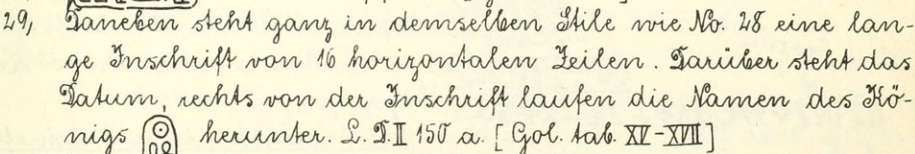 29, Daneben steht ganz in demselben Stile wie No. 28 eine lan-
ge Inschrift von 16 horizontalen Zeilen. Darüber steht das
Datum, rechts von der Inschrift laufen die Namen des Kö-
nigs herunter. L. D. II 150 a. [Gol. tab. XV-XVII]